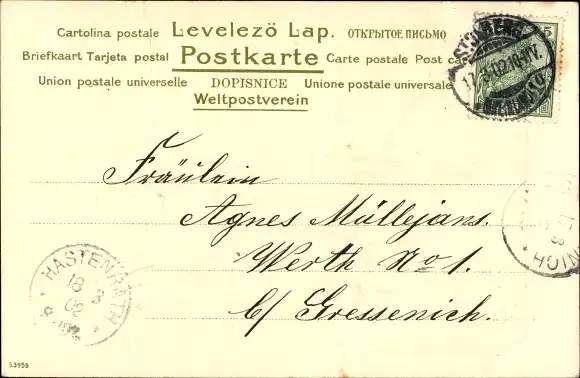 Cartolina postale Levelező Lap. ОТКРЫТОЕ ПИСЬМО
Briefkaart Tarjeta postal Postkarte Carte postale Post
Union postale universelle DOPISNICE Unione postale universale
Weltpostverein
5
STOLBERG
17.3.02
Fräulein
Agnes Müllejans.
Werth No 1.
b/ Gressenich.
HASTENRATH
18 3
02
NICH
53959